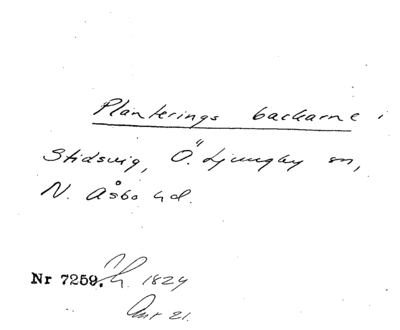 Planterings backarne i
Stidsvig, Ö. Ljungby sn,
N. Åsbo hd.
Nr 7259. 1824
21.